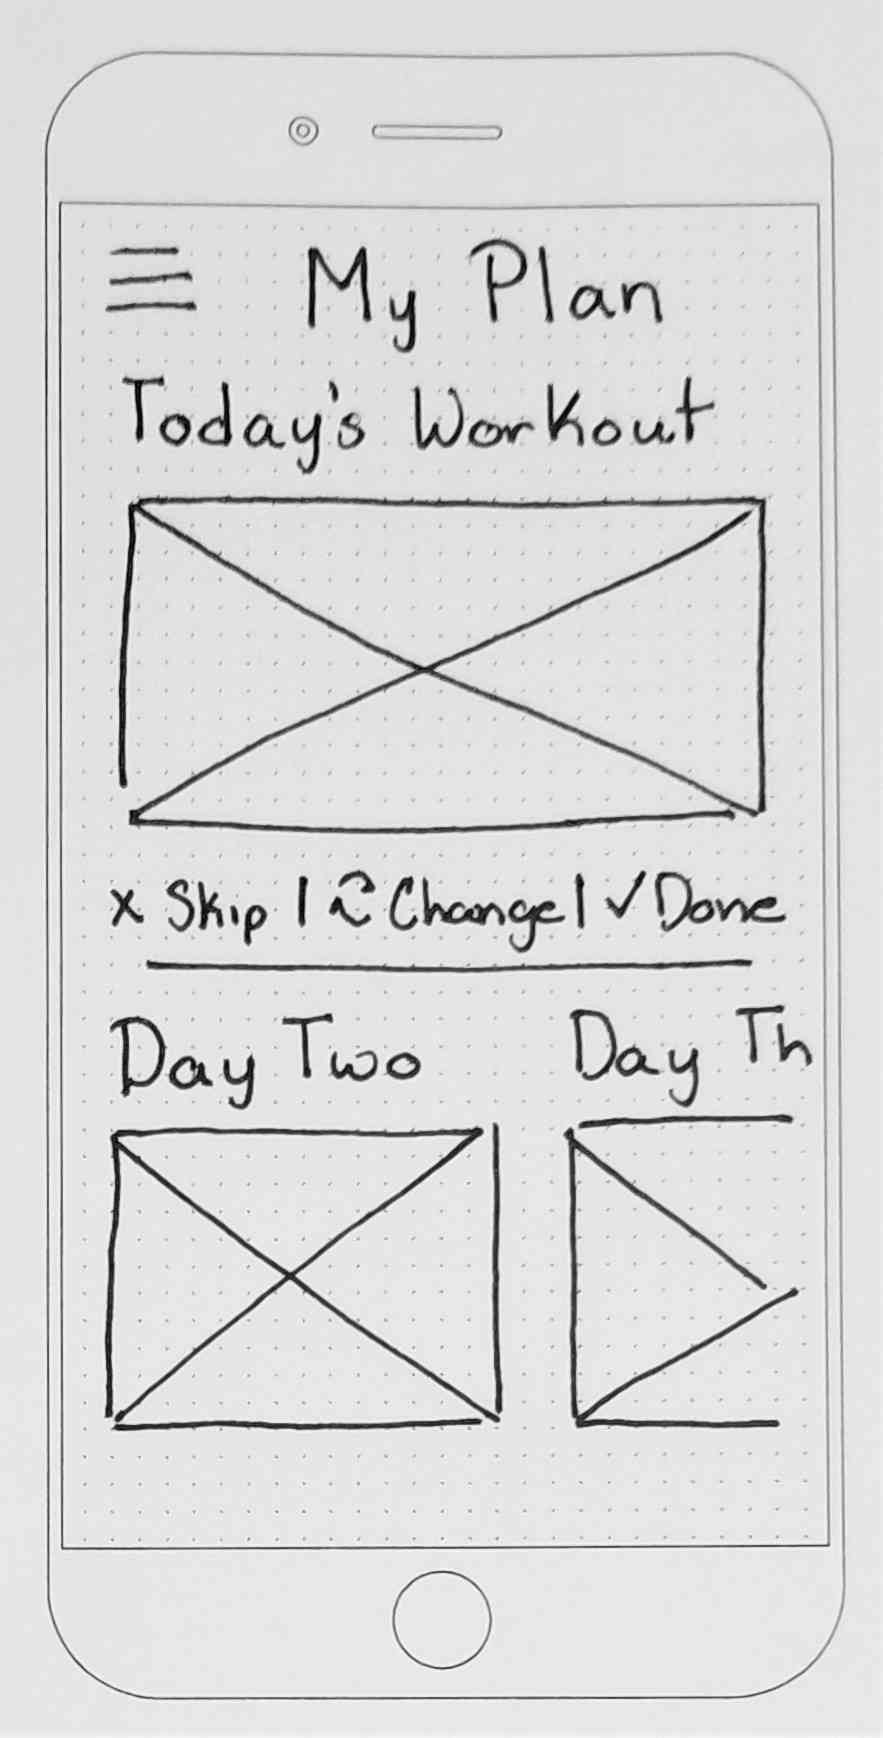 My Plan
Today's Workout
x Skip | Change | ✓ Done
Day Two
Day Th